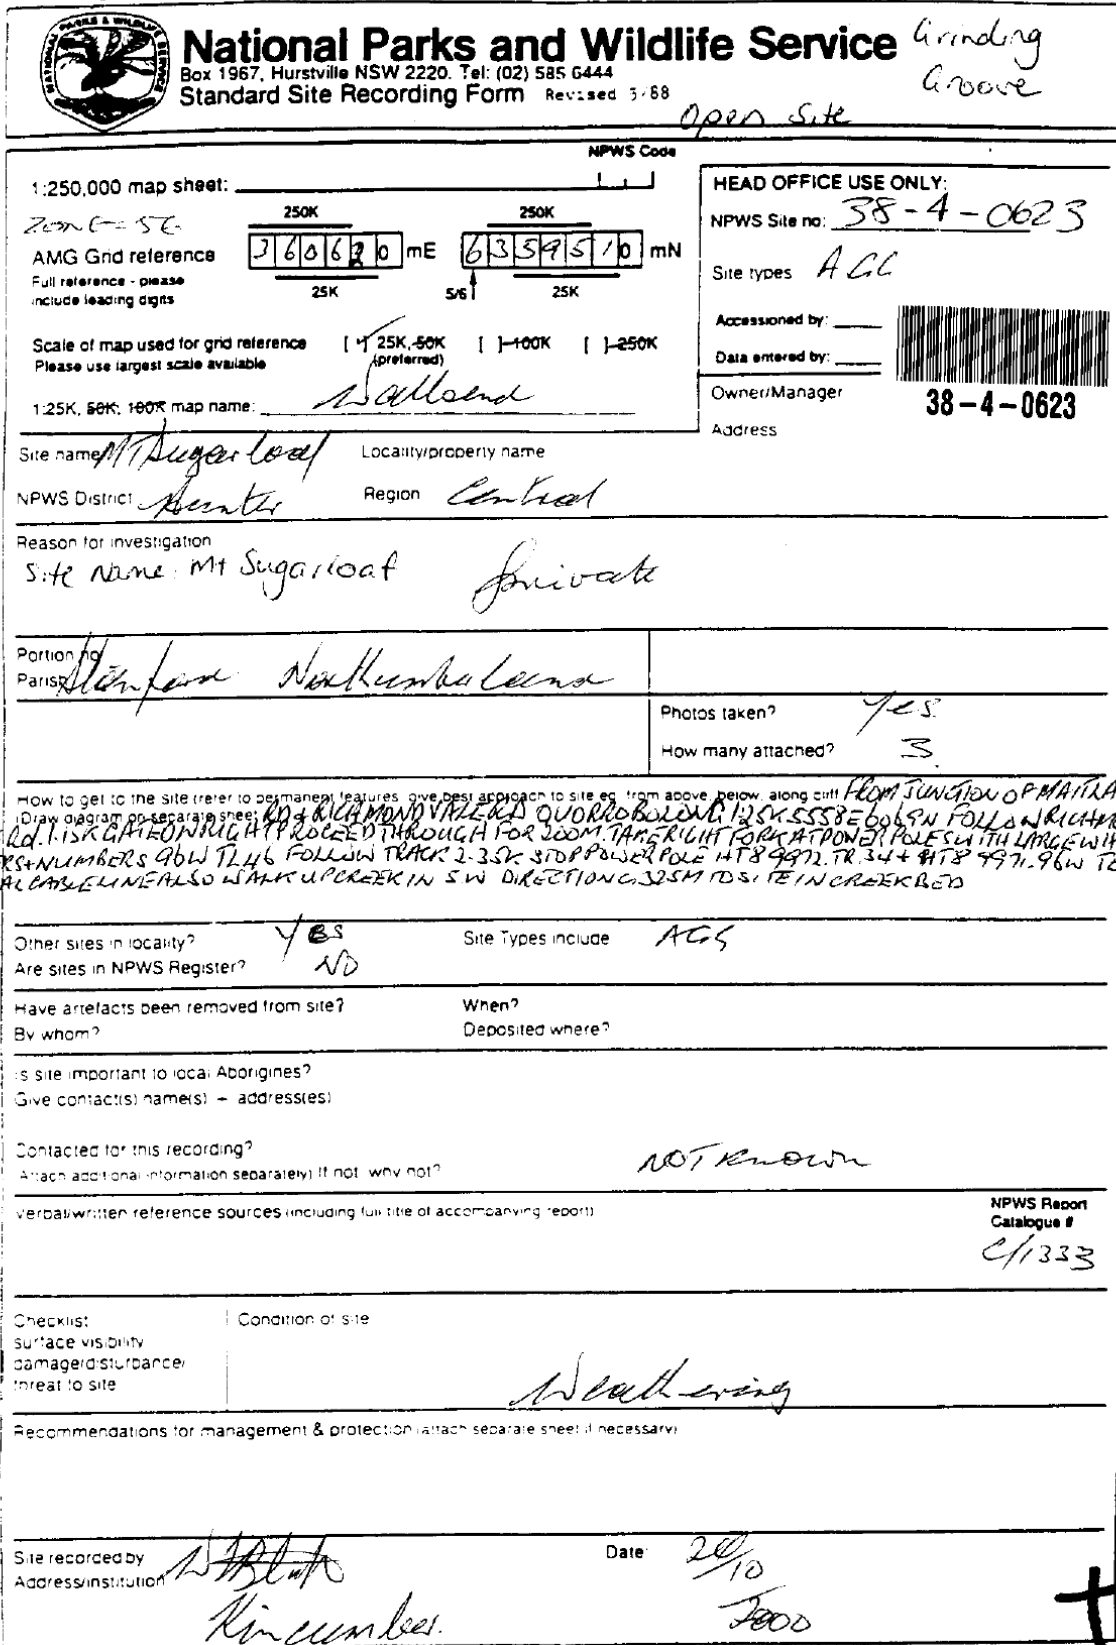 National Parks and Wildlife Service
Grinding
Groove
Box 1967, Hurstville NSW 2220. Tel: (02) 585 6444
Standard Site Recording Form Revised 3/88
Open Site
NPWS Code
1:250,000 map sheet:
HEAD OFFICE USE ONLY:
NPWS Site no: 38-4-0623
ZONE-56
250K 250K
AMG Grid reference 360620 mE 6359510 mN
Full reference - please
include leading digits
25K 5/6 25K
Site types AGG
Accessioned by:
Data entered by:
38-4-0623
Scale of map used for grid reference [✓] 25K, 50K [ ] 100K [ ] 250K
Please use largest scale available (preferred)
1:25K, 50K, 100K map name: Wallsend
Owner/Manager
Address
Site name MT Sugarloaf Locality/property name
NPWS District Hunter Region Central
Reason for investigation
Site Name: Mt Sugarloaf private
Portion no
Parish Stanford Northumberland
Photos taken? Yes.
How many attached? 3
How to get to the site (refer to permanent features, give best approach to site eg. from above, below, along cliff FROM JUNCTION OF MAITLA
(Draw diagram on separate sheet) RD + RICHMOND VALE RD QUORROBOLONG 125K 5558E 6069N FOLLOW RICHM
Rd. 1.15K GATE ON RIGHT PROCEED THROUGH FOR 200M. TAKE RIGHT FORK AT POWER POLES WITH LARGE WH
RS+NUMBERS 96W TL46 FOLLOW TRACK 2.35K STOP POWER POLE HT8 9972. TR.34 + HT8 9971.96W TE
AL CABLE LINE ALSO WALK UP CREEK IN SW DIRECTION C.325M TO SITE IN CREEK BED
Other sites in locality? YES Site Types include AGG
Are sites in NPWS Register? NO
Have artefacts been removed from site? When?
By whom? Deposited where?
Is site important to local Aborigines?
Give contact(s) name(s) + address(es)
Contacted for this recording?
(Attach additional information separately) If not, why not? NOT Known
Verbal/written reference sources (including full title of accompanying report)
NPWS Report
Catalogue #
C/1333
Checklist:
surface visibility
damage/disturbance/
threat to site
Condition of site
Weathering
Recommendations for management & protection (attach separate sheet if necessary)
Site recorded by Date:
Address/institution
Kincumber. 2000